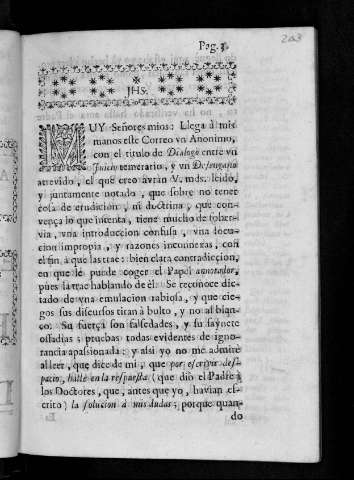 203
Pag. 3.
JHS.
MUY Señores mios: Llega à mis
manos este Correo vn Anonimo,
con el titulo de Dialogo entre vn
Juicio temerario, y vn Desengaño
atrevido, el que creo avràn V. mds. leìdo,
y juntamente notado, que sobre no tener
cosa de erudicion, ni doctrina, que con-
vença lo que intenta, tiene mucho de
vna introduccion confusa, vna locu-
cion impropia, y razones inconnexas, con
el fin à que las trae: bien clara contradiccion,
en que le puede coger el Papel annotador,
pues la trae hablando de èl. Se reconoce dic-
tado de vna emulacion rabiosa, y que cie-
gos sus discursos tiran à bulto, y no al blan-
co: Su fuerça son falsedades, y su saynete
ossadias; pruebas todas evidentes de igno-
rancia apasionada: y assi yo no me admirè
al leer, que dice de mi, que por escrivir des-
pacio, hallè en la respuesta (que diò el Padre à
los Doctores, que, antes que yo, havian es-
crito) la solucion à mis dudas; porque quan-
do